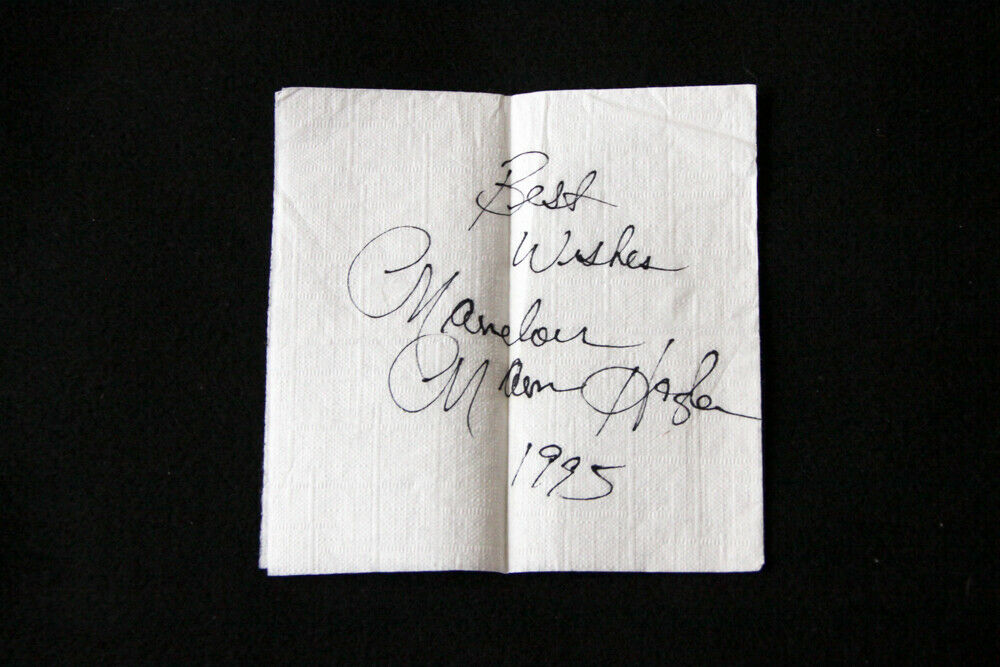 Best
Wishes
Marvelous
Marvin Hagler
1995